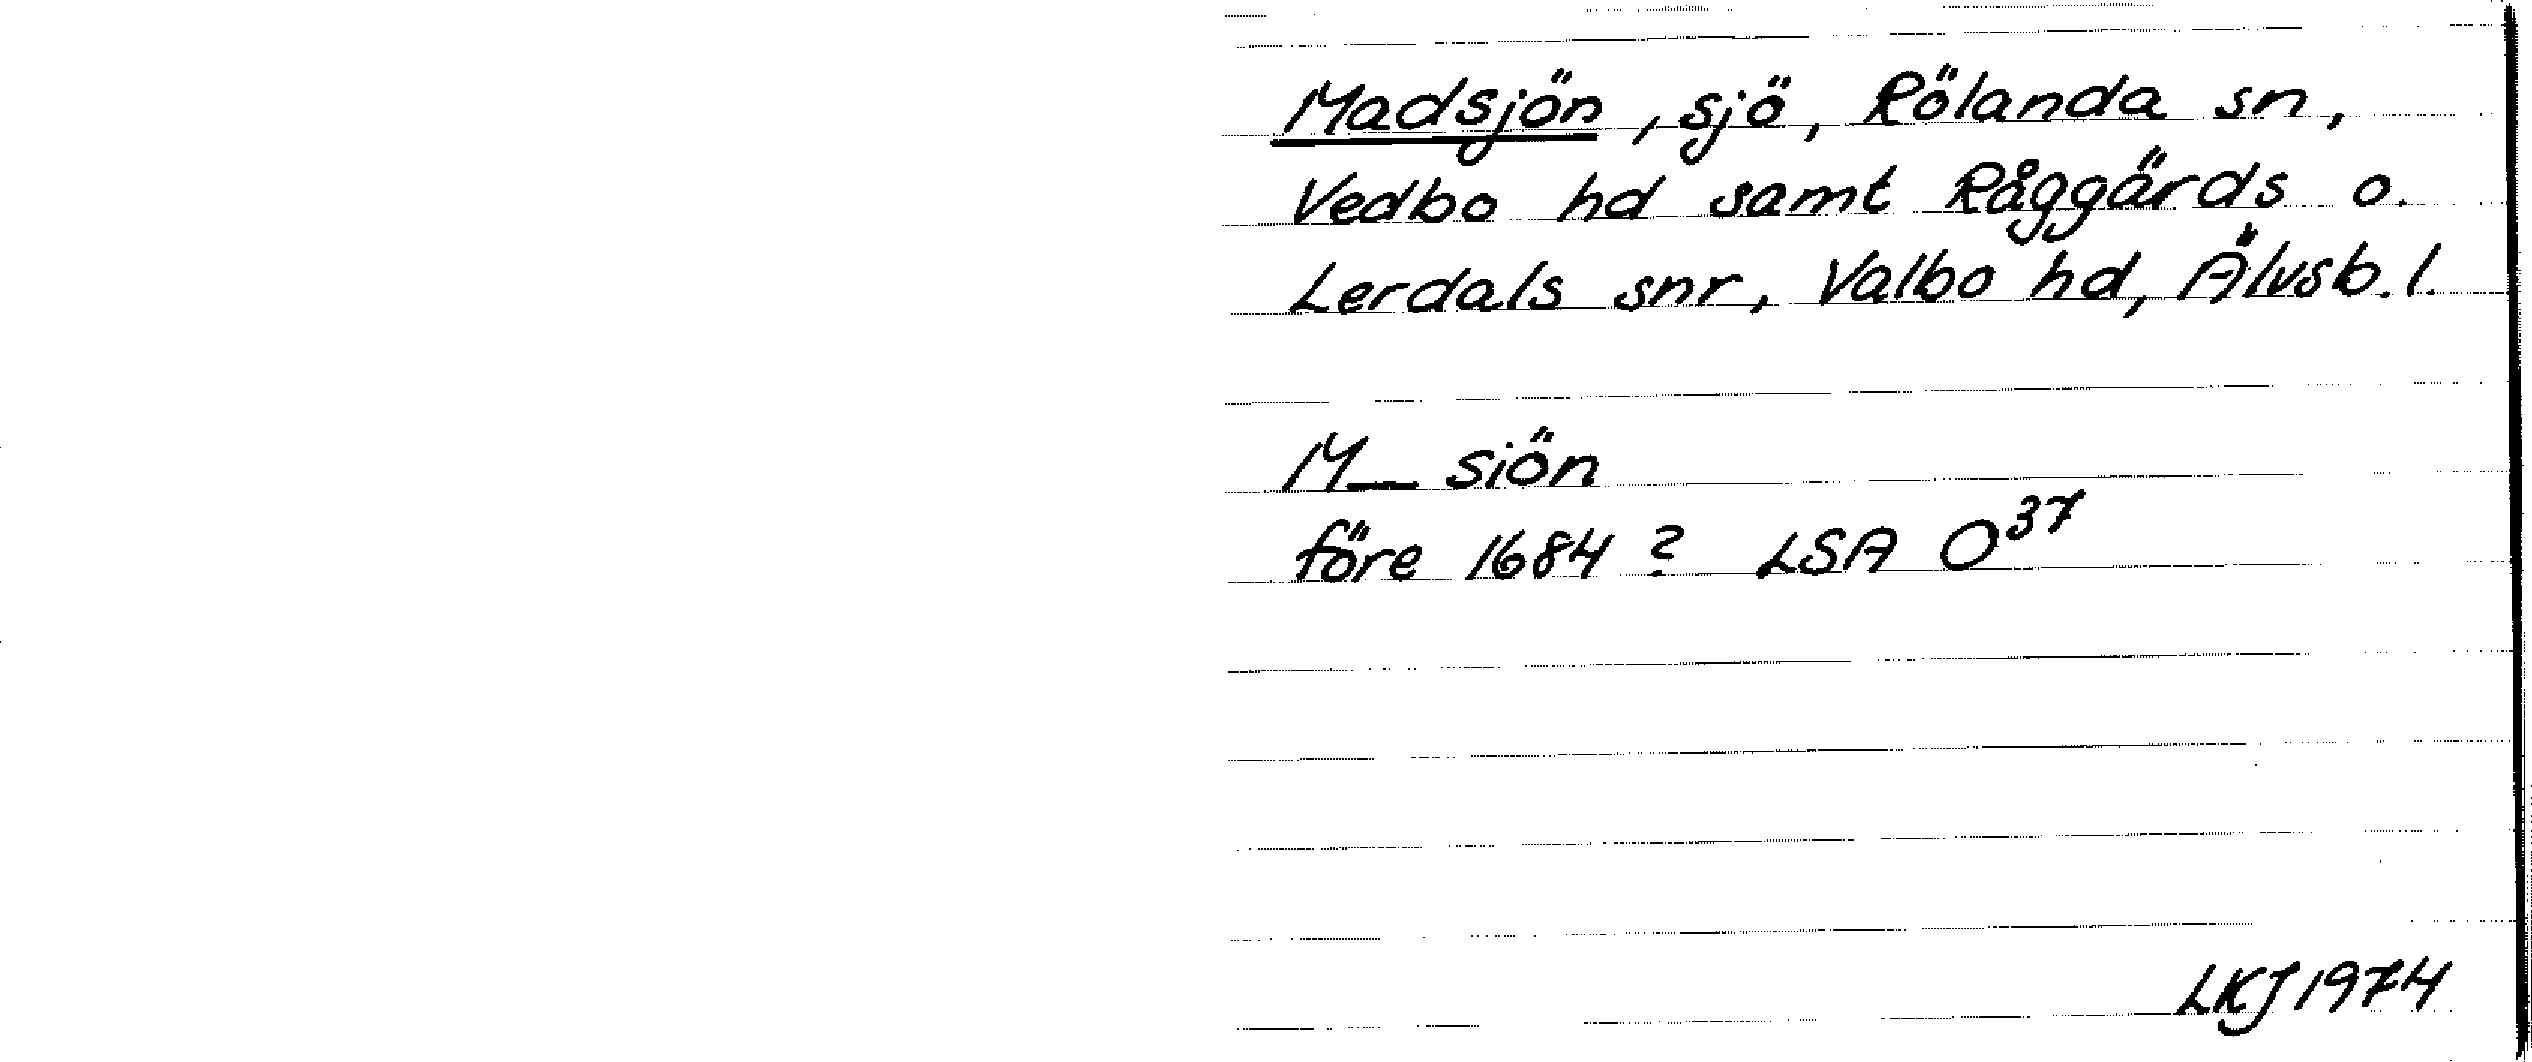 Madsjön, sjö, Rölanda sn,
Vedbo hd samt Råggärds o.
Lerdals snr, Valbo hd, Älvsb. l.
M— siön
före 1684 ? LSA O³⁷
LKJ 1974